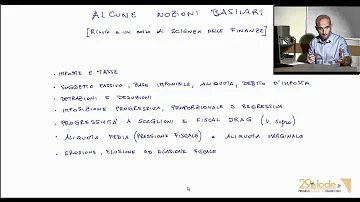 ALCUNE NOZIONI BASILARI
[RINVIO A UN CORSO DI SCIENZA DELLE FINANZE]
• IMPOSTE E TASSE
• SOGGETTO PASSIVO, BASE IMPONIBILE, ALIQUOTA, DEBITO D'IMPOSTA
• DETRAZIONI E DEDUZIONI
• IMPOSIZIONE PROGRESSIVA, PROPORZIONALE E REGRESSIVA
• PROGRESSIVITÀ A SCAGLIONI E FISCAL DRAG (V. SOPRA)
• ALIQUOTA MEDIA (PRESSIONE FISCALE) E ALIQUOTA MARGINALE
• EROSIONE, ELUSIONE ED EVASIONE FISCALE
29elode.it